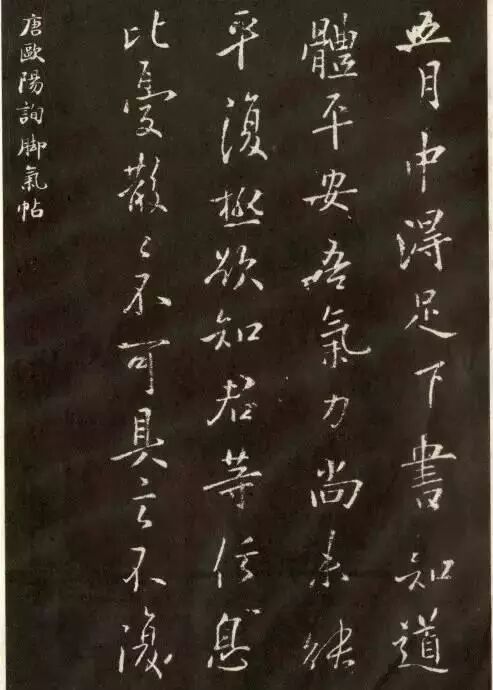 五月中得足下書知道
體平安吾氣力尚未能
平復極欲知君等信息
比憂散〻不可具言不復
唐歐陽詢脚氣帖